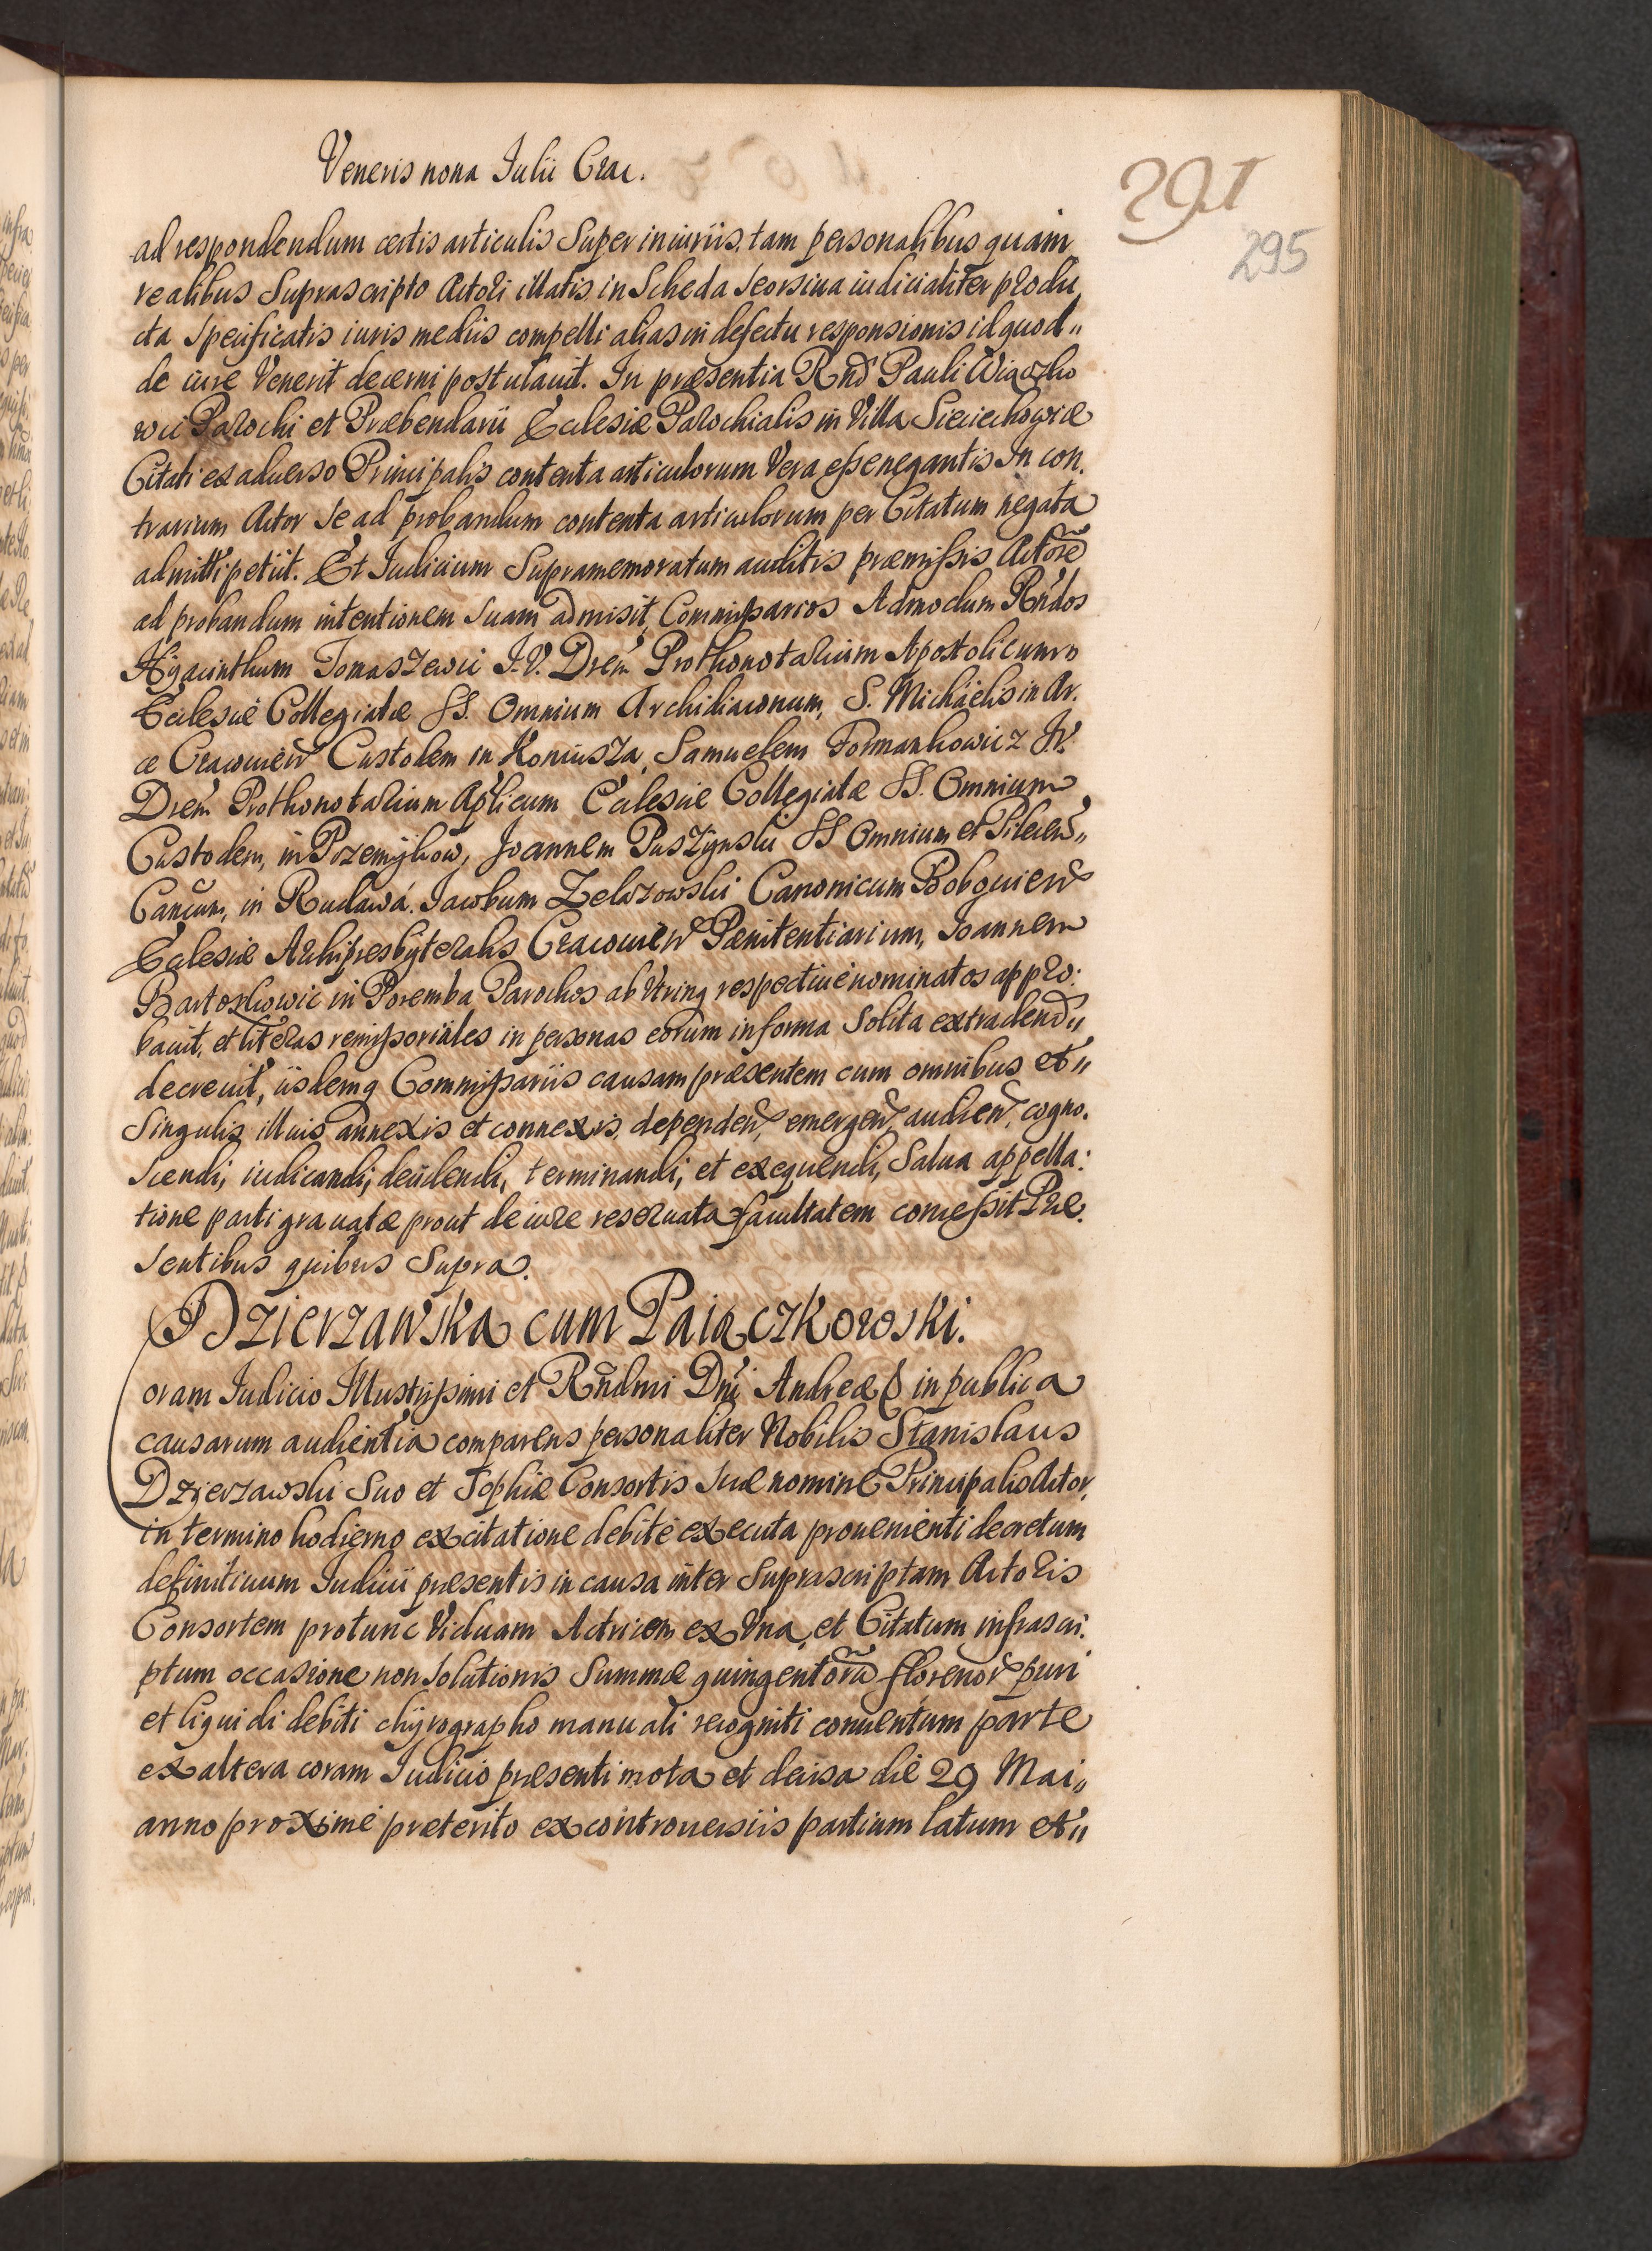 Veneris nona Iulii Crac.
291
295
ad respondendum certis articulis Super iniuriis tam personalibus quam
realibus Suprascripto Actori illatis in Scheda Seorsiua iudicialiter produ
cta Specificatis iuris mediis compelli alias in defectu responsionis id quod„
de iure Venerit decerni postulauit. In præsentia Rñd Pauli Wiączko
wic Parochi et Præbendarii Ecclesiæ Parochialis in Villa Sieciechowice
Citati ex aduerso Principalis contenta articulorum Vera esse negantis In con.
trarium Actor Se ad probandum contenta articulorum per Citatum negata
admitti petiit. Et Iudicium Supramemoratum auditis præmissis Actorẽ
ad probandum intentionem Suam admisit, Commissarios Admodum Rñdos
Hyacinthum Tomaszewic I.V. Drem Prothonotarium Apostolicum
Ecclesiæ Collegiatæ SS. Omnium Archidiaconum, S. Michaelis in Ar.
ce Cracouien Custodem in Koniusza, Samuelem Formankowicz Iv.
Drem Prothonotarium Aplicum Ecclesiæ Collegiatæ SS. Omnium
Custodem, in Przemykow, Joannem Puszynski SS Omnium et Pilecen„
Cancum, in Rudawa. Iacobum Zelazowski Canonicum Bobouien
Ecclesiæ Archipresbyteralis Cracouien Pænitentiarium, Joannem
Bartoszkowic in Poremba Parochos ab Vtrinq respectiue nominatos appro:
bauit, et literas remissoriales in personas eorum in forma Solita extradend„
decreuit, iisdemq Commissariis causam præsentem cum omnibus et„
Singulis illius annexis et connexis, dependen, emergen, audien, cogno.
scendi, iudicandi, decidendi, terminandi, et exequendi, Salua appella:
tione parti grauatæ prout de iure reseruata facultatem concessit Præ.
sentibus quibus Supra.
Dzierzawska cum Paiączkowski.
Coram Iudicio Illustrissimi et Rñdmi Dni Andreæ in publica
causarum audientia comparens personaliter Nobilis Stanislaus
Dzierzawski Suo et Sophiæ Consortis Suæ nomine Principalis Actor,
in termino hodierno ex citatione debite executa prouenienti decretum
definitiuum Iudicii præsentis in causa inter Suprascriptam Actoris
Consortem protunc Viduam Actricem ex Vna, et Citatum infrascri.
ptum occasione non Solutionis Summæ quingentorũ florenor puri
et liquidi debiti chyrographo manuali recogniti conuentum parte
ex altera coram Iudicio præsenti mota et decisa die 29 Mai„
anno proxime præterito ex controuersiis partium latum et„